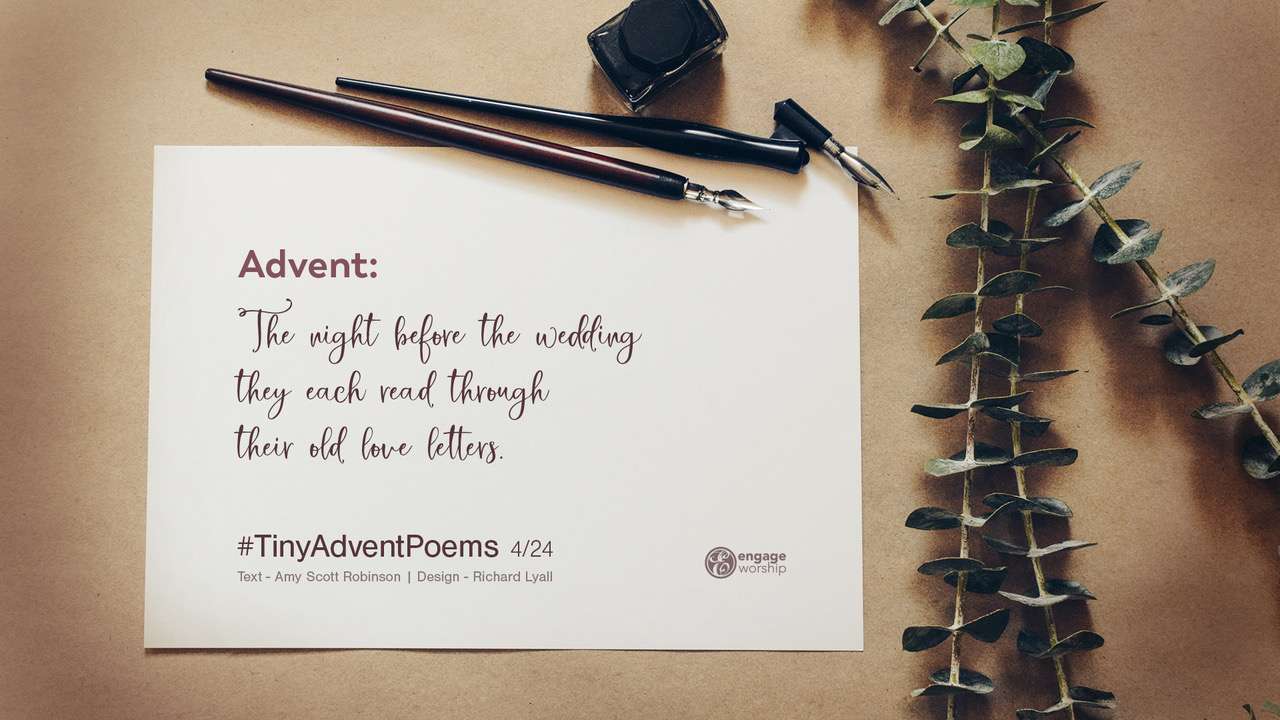 Advent:
The night before the wedding
they each read through
their old love letters.
#TinyAdventPoems 4/24
Text - Amy Scott Robinson | Design - Richard Lyall
engage
worship